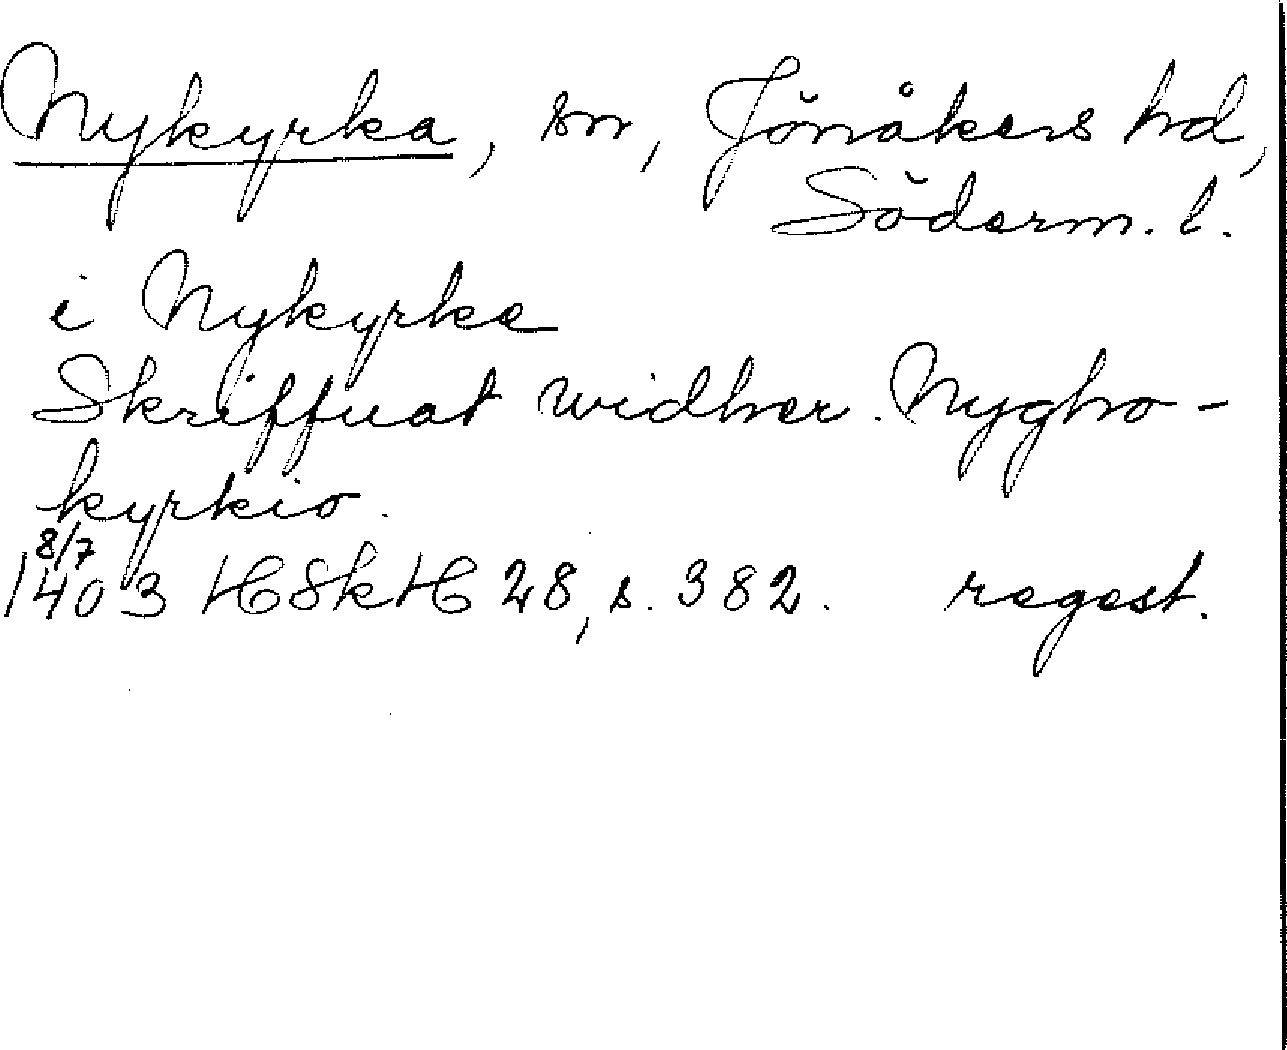 Nykyrka, sn, Jönåkers hd,
Söderm. l.
i Nykyrka
Skriffuat widher. Nygho-
kyrkio.
8/7
1403 HSkH 28, s. 382. regest.